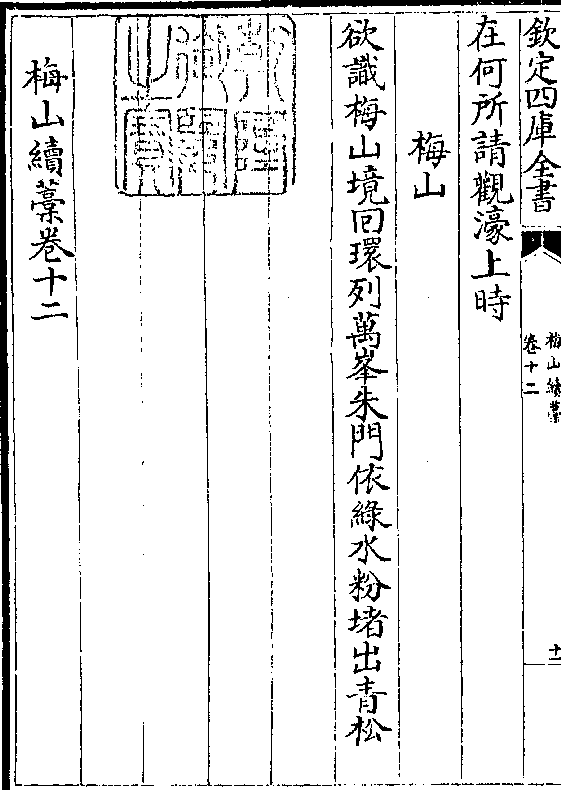 欽定四庫全書
梅山續藁
卷十二
十一
在何所請觀濠上時
梅山
欲識梅山境回環列萬峯朱門依綠水粉堵出青松
梅山續藁卷十二